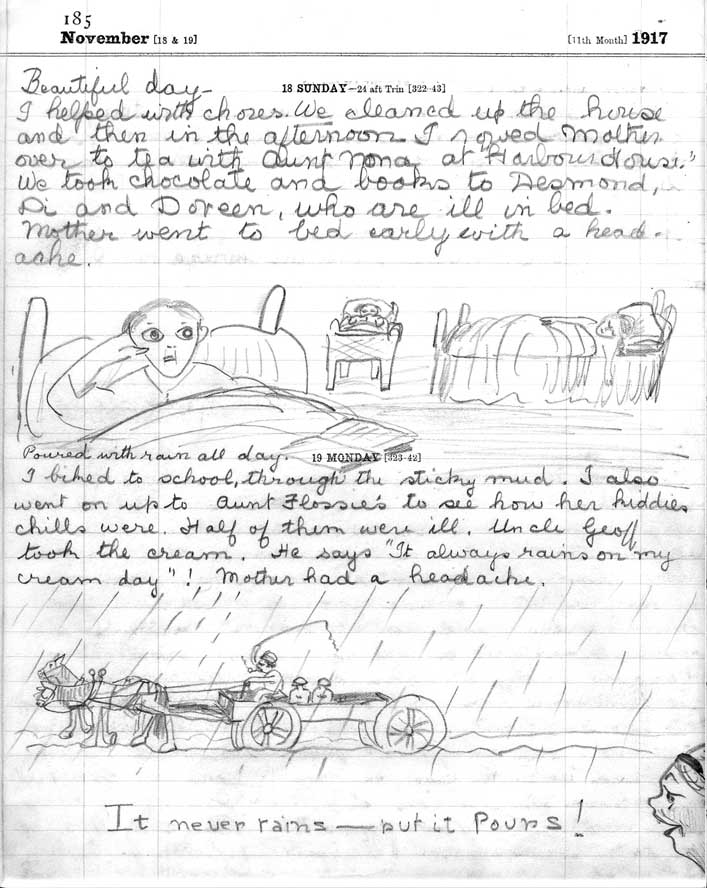 185
November [18 & 19] [11th Month] 1917
Beautiful day-
18 SUNDAY—24 aft Trin [322-43]
I helped with chores. We cleaned up the house
and then in the afternoon I rowed Mother
over to tea with Aunt Nona at "Harbour House."
We took chocolate and books to Desmond,
Di and Doreen, who are ill in bed.
Mother went to bed early with a head-
ache.
Poured with rain all day.
19 MONDAY [323-42]
I biked to school, through the sticky mud. I also
went on up to Aunt Flossie's to see how her kiddies
chills were. Half of them were ill. Uncle Geoff
took the cream. He says "It always rains on my
cream day"! Mother had a headache.
It never rains — but it Pours!